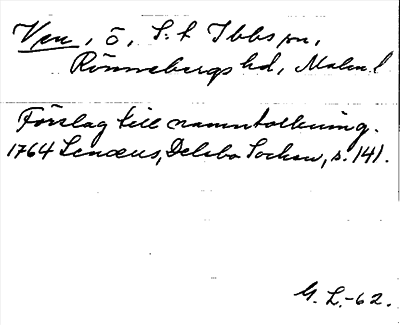 Ven, ö, S:t Ibbs sn,
Rönnebergs hd, Malm. l
Förslag till namntolkning.
1764 Lenæus, Delsbo Sochen, s. 141.
G. L.-62.